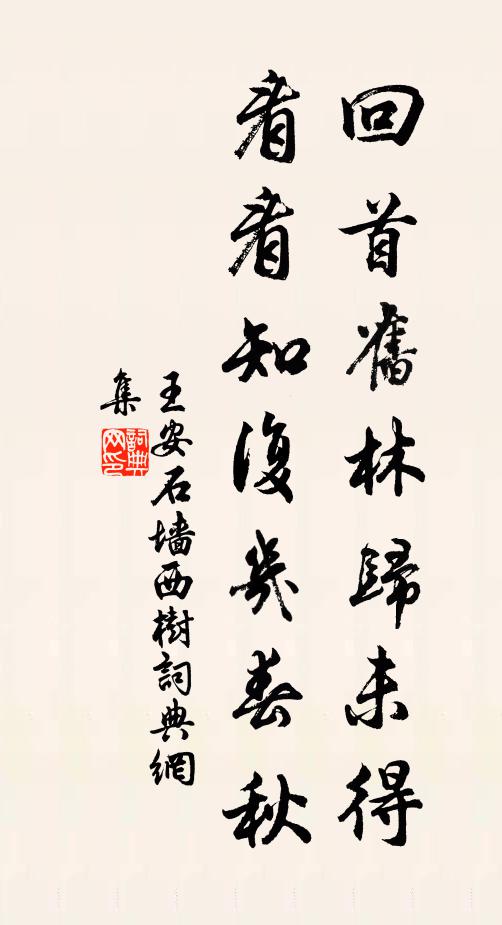 回首舊林歸未得
看看知復幾春秋
王安石墙西樹詞典網
集
詞典
网印